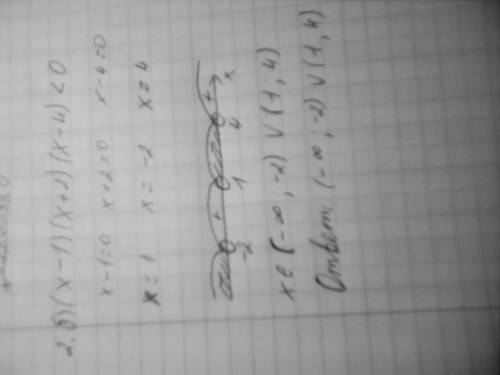 2. б) (x-1)(x+2)(x-4)<0
x-1=0 x+2=0 x-4=0
x=1 x=-2 x=4
+ +
-2 1 4 x
x∈(-∞, -2) ∨ (1, 4)
Ответ: (-∞, -2) ∨ (1, 4)